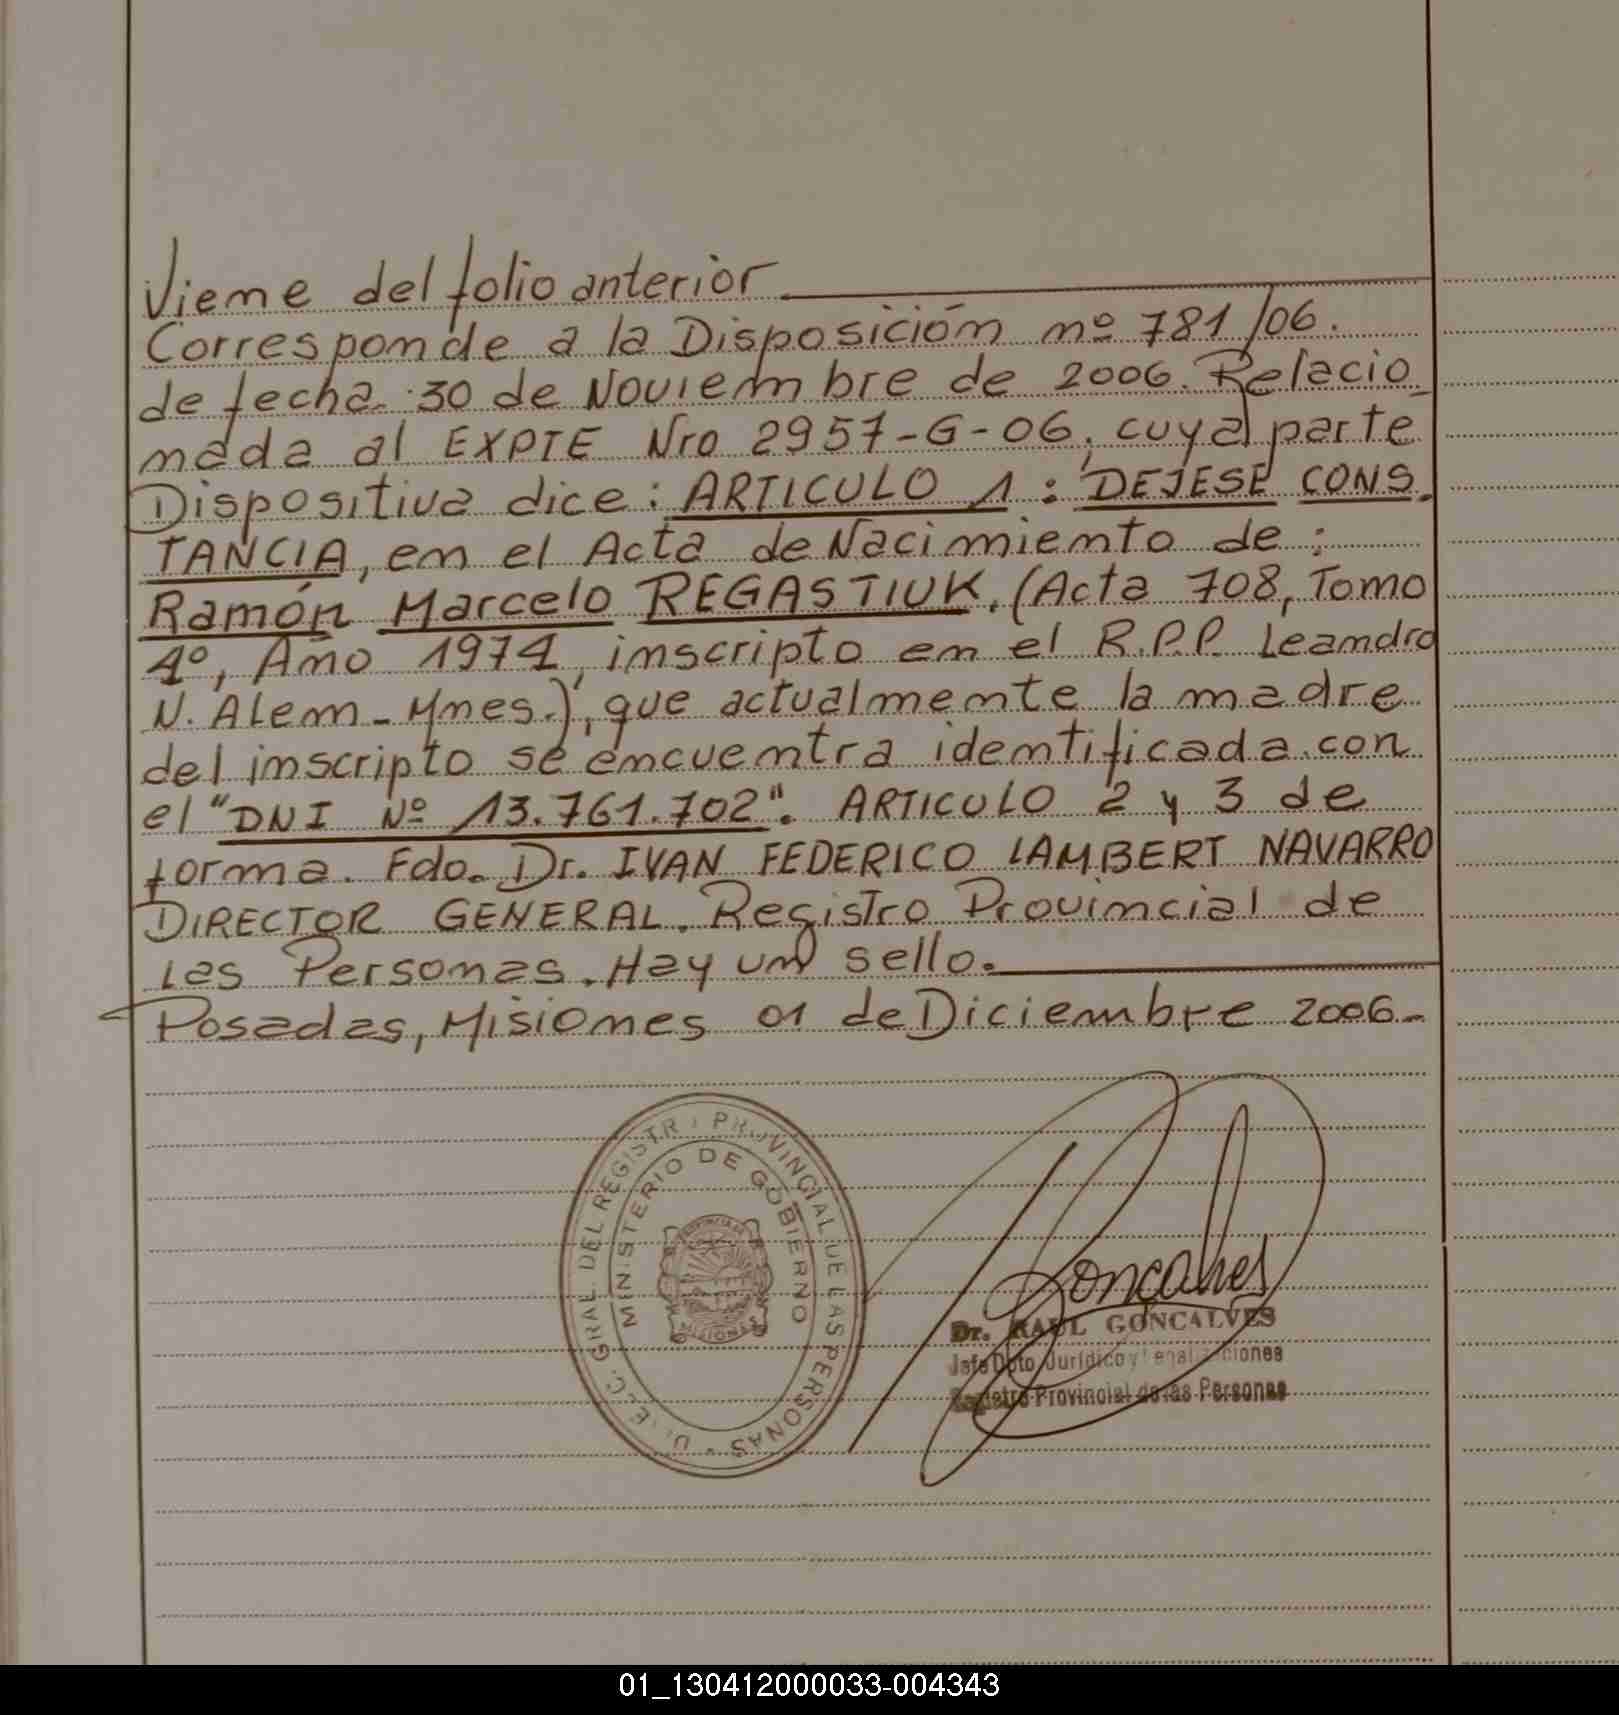 Viene del folio anterior
Corresponde a la Disposición nº 781/06.
de fecha 30 de Noviembre de 2006. Relacio
nada al EXPTE Nro 2957-G-06, cuya parte
Dispositiva dice: ARTICULO 1: DEJESE CONS-
TANCIA, en el Acta de Nacimiento de:
Ramón Marcelo REGASTIUK, (Acta 708, Tomo
4º, Año 1974, inscripto en el R.P.P. Leandro
N. Alem - Mnes.), que actualmente la madre
del inscripto se encuentra identificada con
el "DNI Nº 13.761.702". ARTICULO 2 y 3 de
forma. Fdo. Dr. IVAN FEDERICO LAMBERT NAVARRO
DIRECTOR GENERAL. Registro Provincial de
las Personas. Hay un sello.
Posadas, Misiones 01 de Diciembre 2006.-
DIREC. GRAL. DEL REGISTRO PROVINCIAL DE LAS PERSONAS
MINISTERIO DE GOBIERNO
PROVINCIA DE
MISIONES
Goncalves
Dr. RAUL GONCALVES
Jefe Dpto. Jurídico y Legalizaciones
Registro Provincial de las Personas
01_130412000033-004343